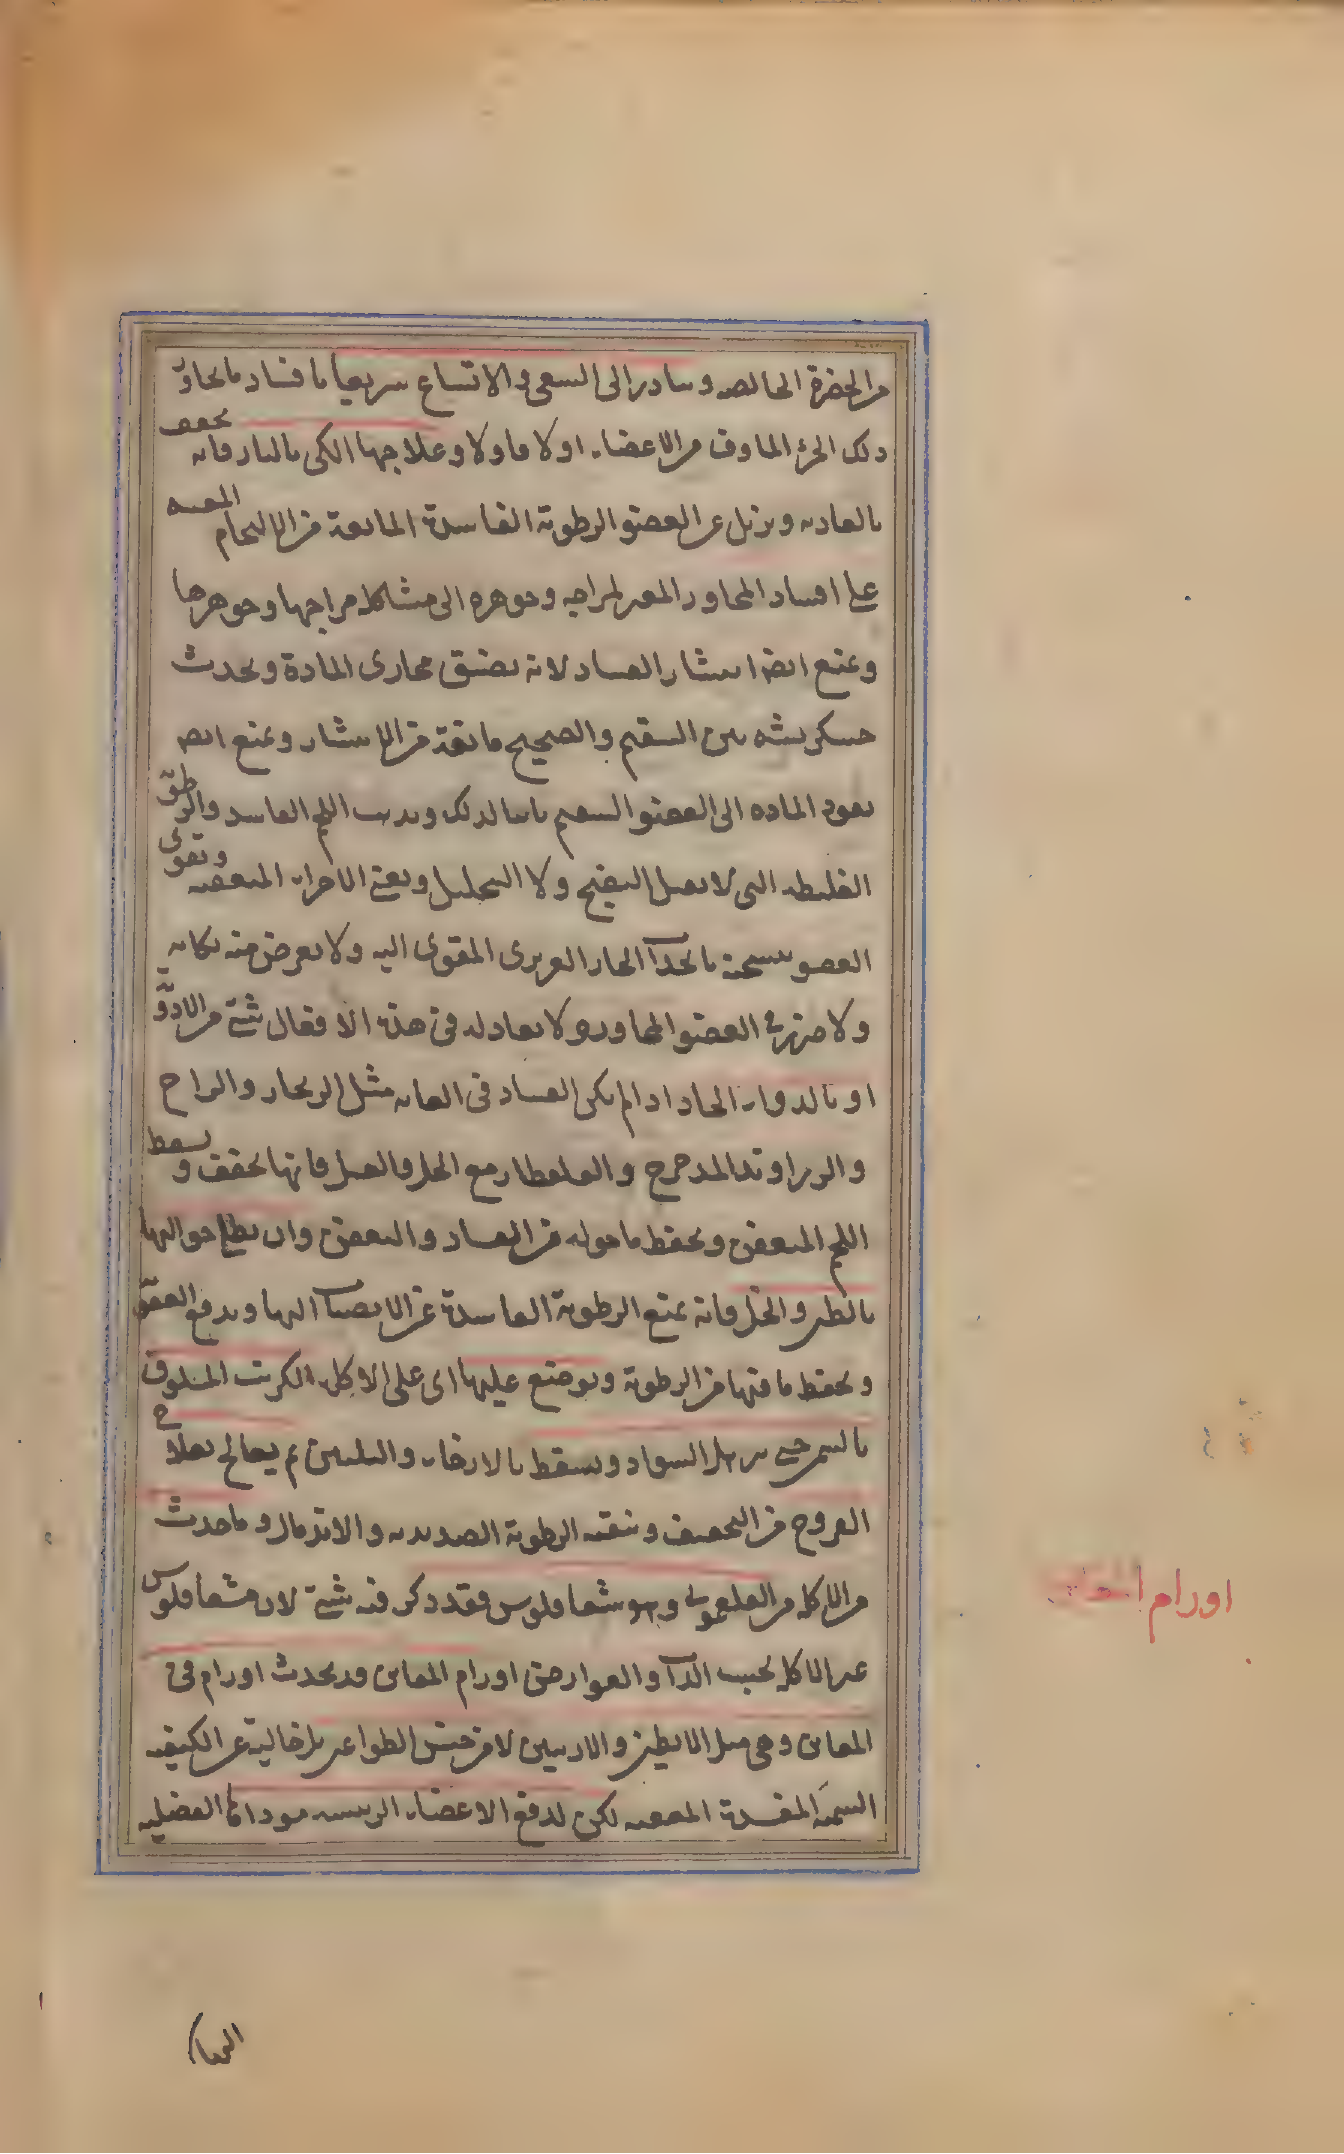 من الحضرة الخالصه ويبادر الى السعى والاتساع سريعا بافساد ما يجاور
ذلك الجزء الماوف من الاعضاء اولا فاولا وعلاجها الكى بالنار فانه يجفف
بالعاديه ويزيل عن العضو الرطوبة الفاسدة المانعة من الالتحام المعينه
على افساد المجاور المغير لمزاجه وجوهره الى مشاكلة مزاجها وجوهرها
ويمنع ايضا انتشار الفساد لانه يضيق مجارى المادة ويحدث
خشكريشه بين السقيم والصحيح مانعة من الانتشار ويمنع ايضا
نفوذ الماده الى العضو السقيم بانسا لذلك ويذيب اللحم الفاسد والرطوبة
الغليظه التى لا يقبل النضج ولا التحليل ويفنى الاجزاء المتعفنه ويقوى
العضو بتسخينه بانجذاب الحار الغريزى المقوى اليه ولا يعرض منه نكايه
ولا ضرر فى العضو المجاور ولا يعادله فى هذه الافعال شئ من الادوية
او بالدواء الحاد اذا لم يكن الفساد فى الغايه مثل الزنجار والزاج
والزراوند المدحرج والقلقطار مع الخل والعسل فانها يجفف ويسقط
اللحم المتعفن ويحفظ ما حوله من الفساد والتعفن وان يطلى حواليها
بالطين والخل فانه يمنع الرطوبة الفاسدة عن الانصباب اليها ويدفع العفونة
ويحفظ ما فيها من الرطوبة ويوضع عليها اى على الاكله الكرنب المسلوق
بالسمن حتى يزيل السواد ويسقط بالارخاء والتليين ثم يعالج بعلاج
القروح من التجفيف وتنقيه الرطوبة الصديديه والاندمال وما حدث
من الاكله من الفلغمونى وهو شفاقلوس فقد ذكر فيه شئ لان شفاقلوس
عن الاكله بحسب الذات والعوارض اورام المغابن قد يحدث اورام فى
المغابن وهى مثل الابطين والاربيتين لا من جنس الطواعين بل خالية عن الكيفيه
السميه المفسدة المعفنه لكن لدفع الاعضاء الرئيسه موادها الفضليه
اورام المغابن
اليها